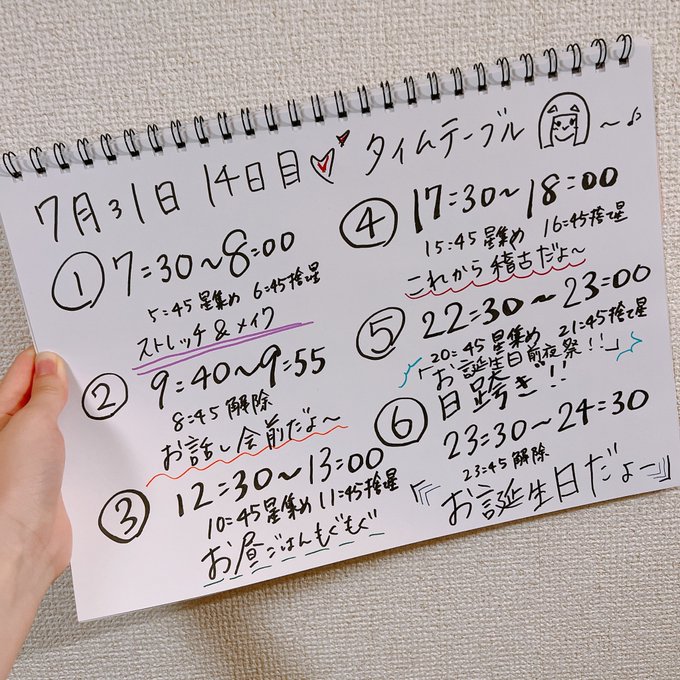 7月31日 14日目 タイムテーブル 〜♪
① 7:30〜8:00
5:45 星集め 6:45 捨て星
ストレッチ&メイク
② 9:40〜9:55
8:45 解除
お話し会前だよ〜
③ 12:30〜13:00
10:45 星集め 11:45 捨て星
お昼ごはんもぐもぐ
④ 17:30〜18:00
15:45 星集め 16:45 捨て星
これから稽古だよ〜
⑤ 22:30〜23:00
20:45 星集め 21:45 捨て星
「お誕生日前夜祭!!」
日跨ぎ!!
⑥ 23:30〜24:30
23:45 解除
『お誕生日だよー』